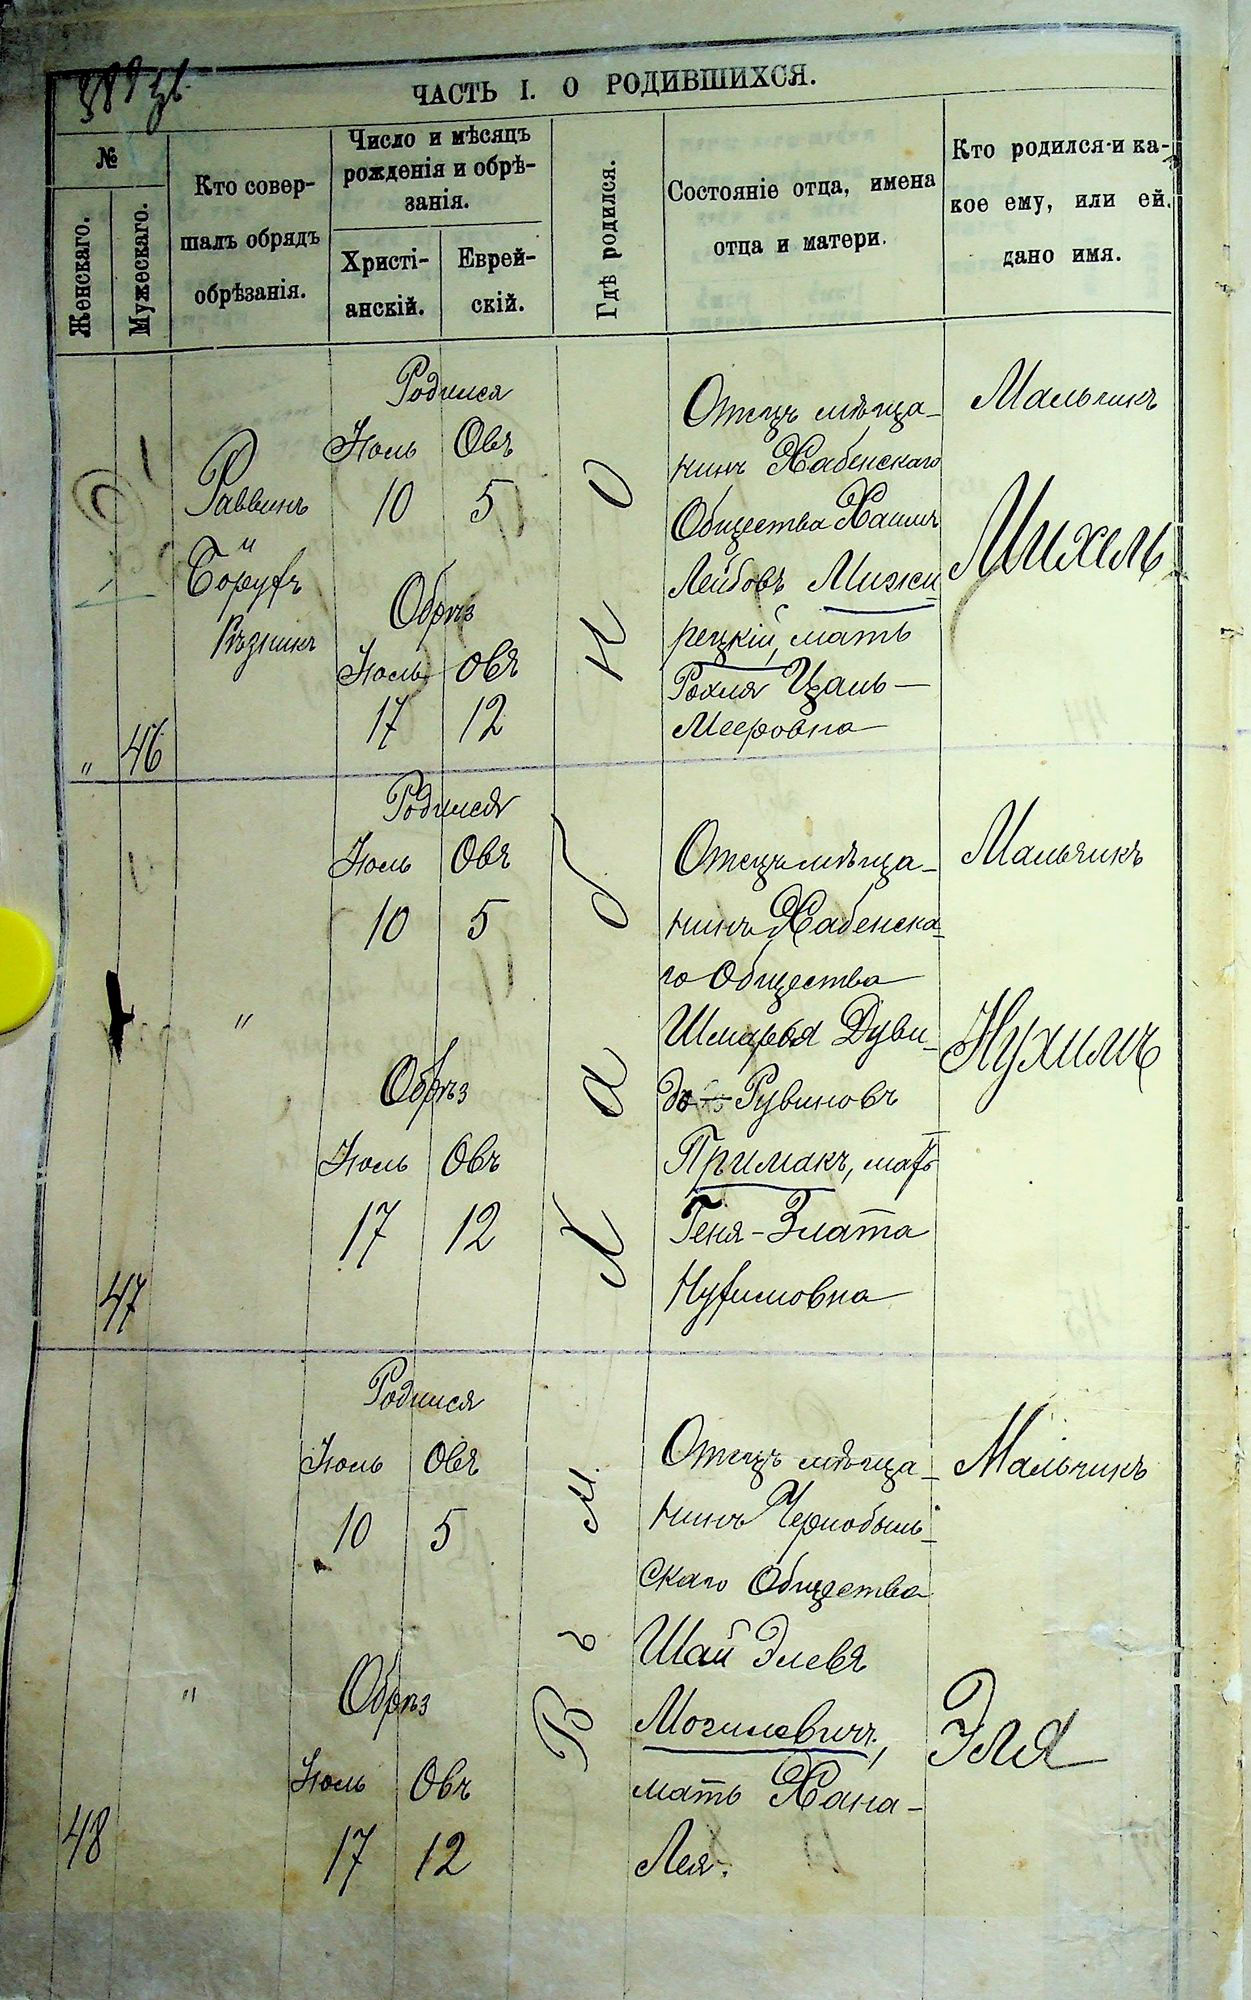 ЧАСТЬ I. О РОДИВШИХСЯ.
№
Женскаго.
Мужескаго.
Кто совер-
шалъ обрядъ
обрѣзанія.
Число и мѣсяцъ
рожденія и обрѣ-
занія.
Христі-
анскій.
Еврей-
скій.
Гдѣ родился.
Состояніе отца, имена
отца и матери.
Кто родился и ка-
кое ему, или ей.
дано имя.
"
46
Раввинъ
и
Борухъ
Рѣзникъ
Родился
Іюль Овъ
10 5
Обрѣз
Іюль Овъ
17 12
Отецъ мѣща-
нинъ Хабенскаго
Общества Хаимъ
Лейбовъ Межи
рецкій, мать
Рохля Цаль-
Мееровна
Мальчикъ
Михель
47
"
Родился
Іюль Овъ
10 5
Обрѣз
Іюль Овъ
17 12
Отецъ мѣща-
нинъ Хабенска-
го Общества
Шмарья Дуви-
дъ Рувиновъ
Примакъ, мать
Геня-Злата
Нухимовна
Мальчикъ
Нухимъ
48
"
Родился
Іюль Овъ
10 5
Обрѣз
Іюль Овъ
17 12
Въ м. Хабно
Отецъ мѣща-
нинъ Чернобыль-
скаго Общества
Шай Элевъ
Могилевичъ,
мать Хана-
Лея.
Мальчикъ
Эля